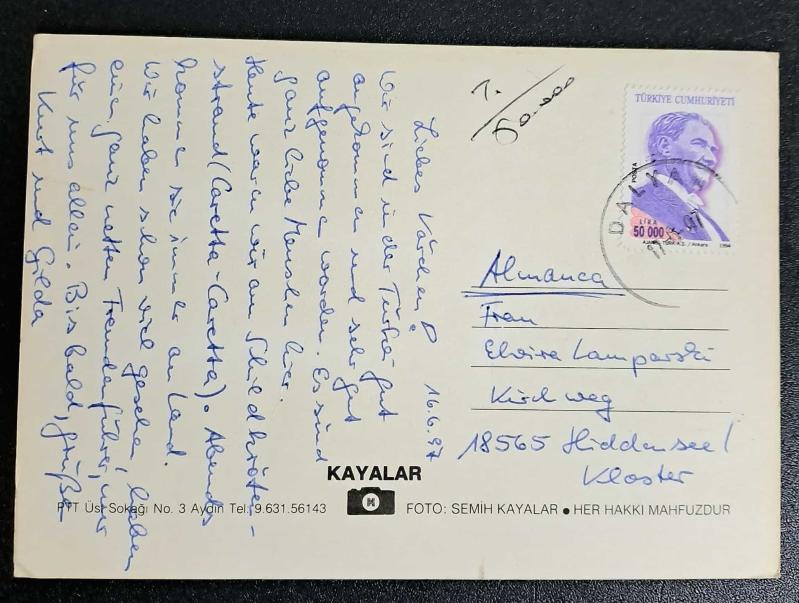 Liebes Värchen!
16.6.97
Wir sind in der Türkei gut
angekommen und sehr gut
aufgenommen worden. Es sind
ganz liebe Menschen hier.
Heute waren wir am Schildkröten-
strand (Caretta-Caretta). Abends
kommen sie immer an Land.
Wir haben schon viel gesehen, haben
einen ganz netten Fremdenführer, nur
für uns allein. Bis bald, Grüße
Kurt und Gilda
T.
50.000
TÜRKİYE CUMHURİYETİ
POSTA
LİRA
50 000
AJANS - TÜRK A.Ş. / Ankara 1994
DALYAN
Almanca
Frau
Elvira Lamparski
Kirchweg
18565 Hiddensee/
Kloster
KAYALAR
PTT Üst Sokağı No. 3 Aydın Tel: 9.631.56143
FOTO: SEMİH KAYALAR ● HER HAKKI MAHFUZDUR